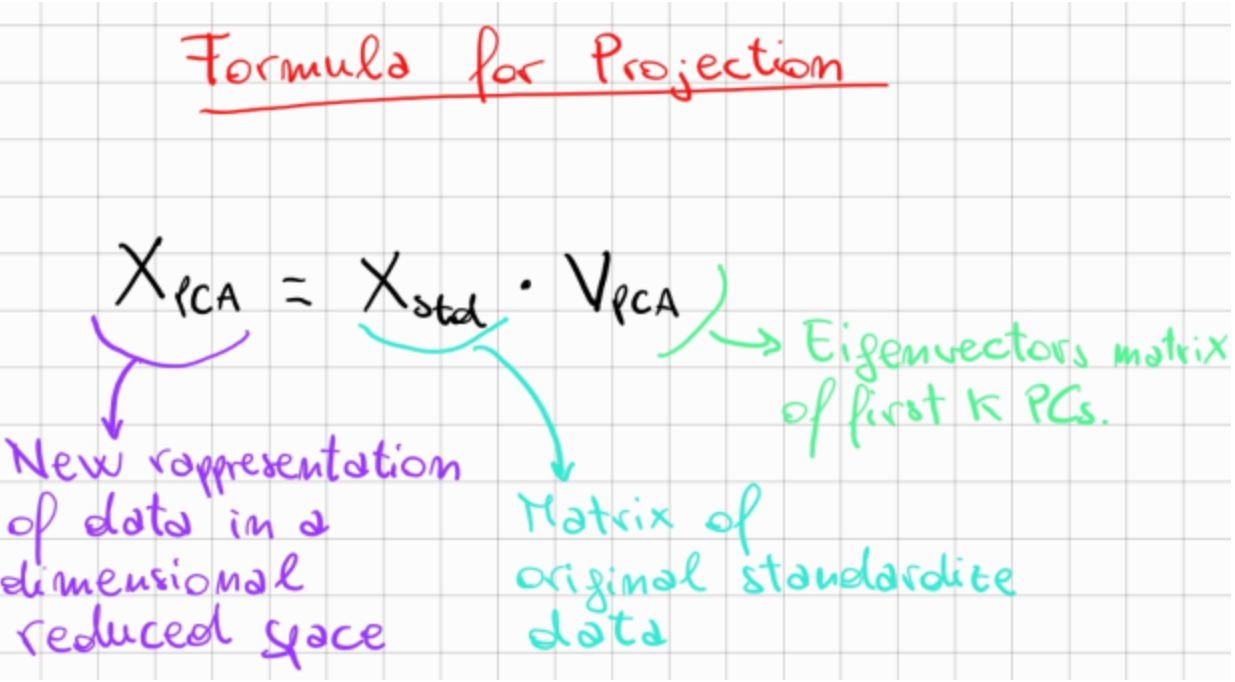 Formula for Projection
X_PCA = X_std · V_PCA
Eigenvectors matrix
of first K PCs.
New rappresentation
of data in a
dimensional
reduced space
Matrix of
original standardize
data